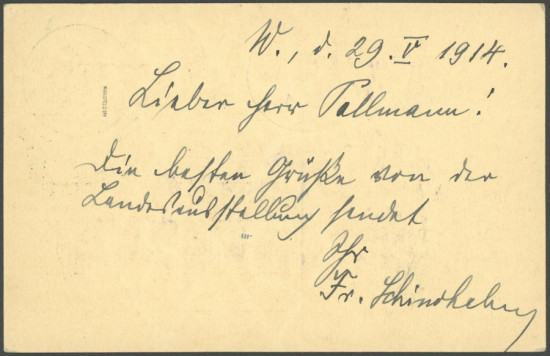 W., d. 29. V 1914.
Lieber Herr Pollmann!
Die besten Grüße von der
Landesausstellung sendet
Ihr
Fr.